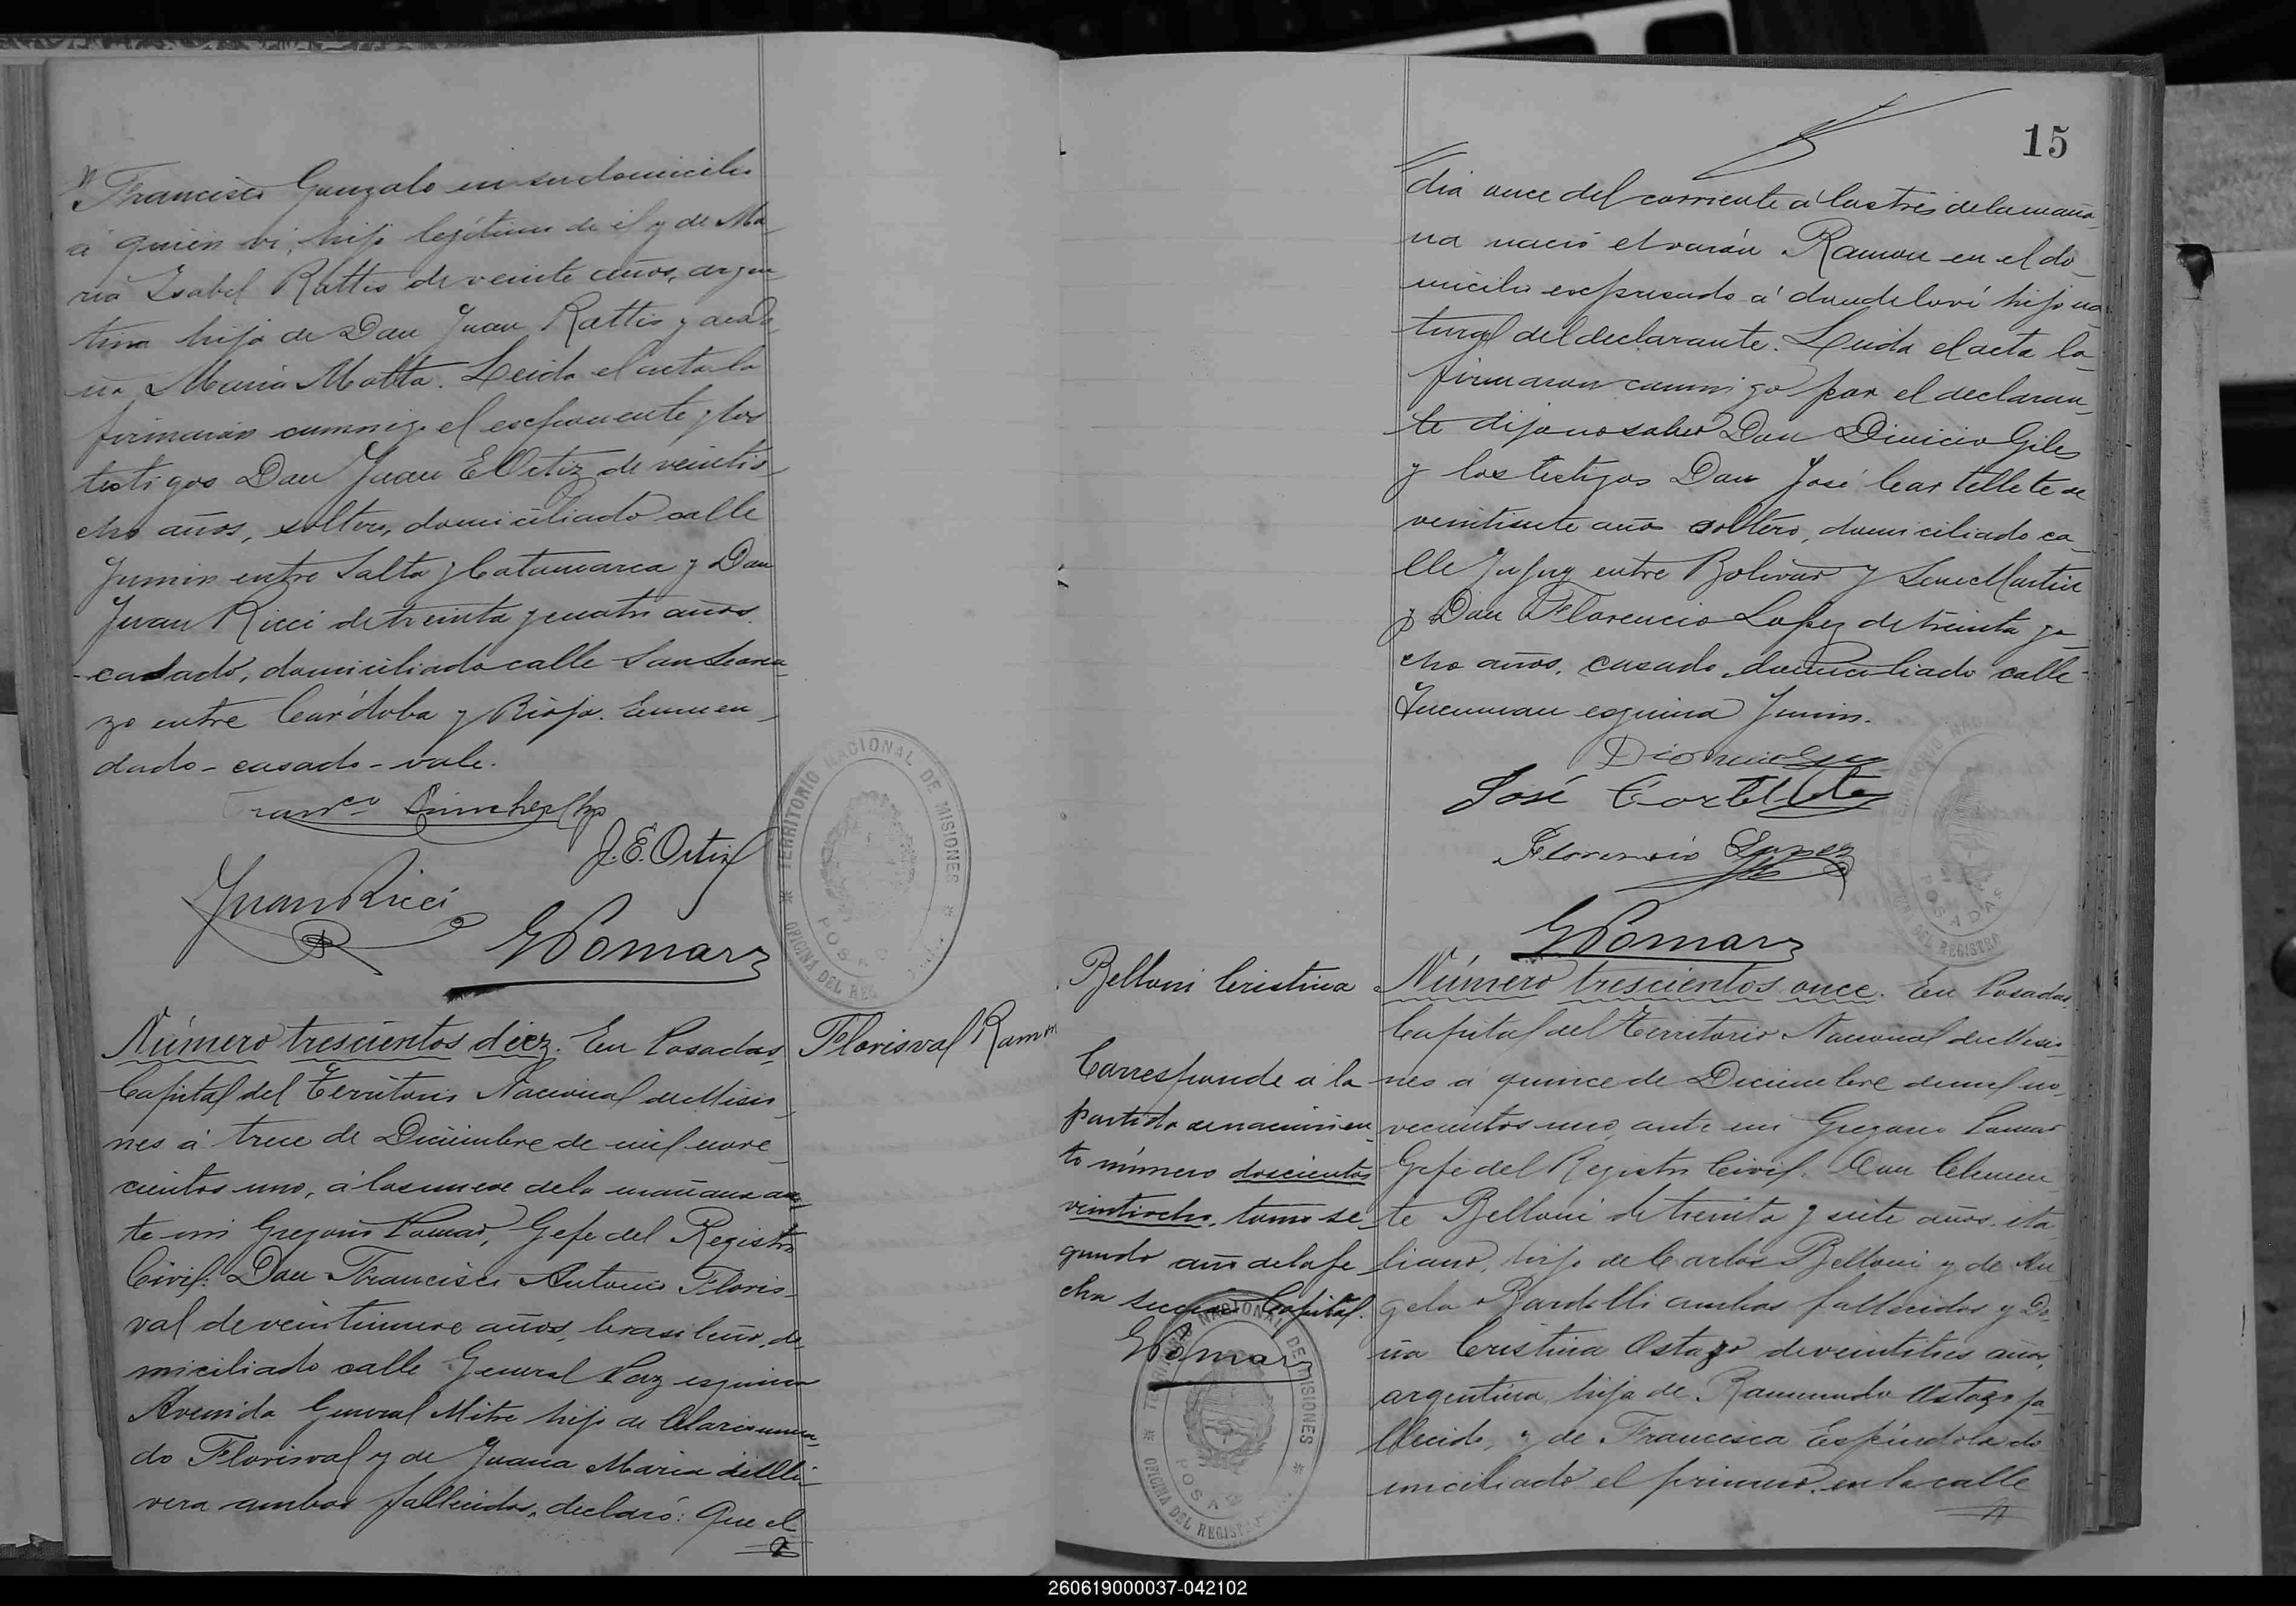 Francisco Gonzalo en su domicilio
á quien vi, hijo legítimo de él y de Ma
ria Isabel Rattis de veinte años, argen
tina hija de Don Juan Rattis y de Do
ña Maria Motta. Leida el acta la
firmaron conmigo el esponente y los
testigos Don Juan E Ortiz de veintio
cho años, soltero, domiciliado calle
Junin entre Salta y Catamarca y Don
Juan Ricci de treinta y cuatro años.
casado, domiciliado calle San Loren
zo entre Córdoba y Rioja. Enmen
dado - casado - vale.
J. E. Ortiz
Juan Ricci
G Pomar
Número trescientos diez. En Posadas,
Capital del Territorio Nacional de Misio
nes á trece de Diciembre de mil nove
cientos uno, á las nueve de la mañana an
te mi Gregorio Pomar, Gefe del Registro
Civil: Don Francisco Antonio Floris
val de veintinueve años, brasileño, do
miciliado calle General Paz esquina
Avenida General Mitre hijo de
do Florisval y de Juana Maria
vera ambos fallecidos, declaró: Que el
Florisval Ramon
TERRITORIO NACIONAL DE MISIONES
OFICINA DEL REG
POSAD
15
dia once del corriente á las tres de la maña
na nació el varón Ramon en el do
micilio espresado á donde lo ví hijo na
tural del declarante. Leida el acta la
firmaron conmigo por el declaran
te dijo no saber Don Dinicio Giles
y los testigos Don José Cortellete de
veintisiete años soltero, domiciliado ca
lle Jujuy entre Bolivar y San Martin
y Don Florencio Lopez de treinta y o
cho años, casado, domiciliado calle
Tucuman esquina Junin.
José Cortellete
Florencio Lopez
G Pomar
TERRITORIO NAC
POSADAS
DEL REGISTRO
Belloni Cristina
Corresponde á la
partida de nacimien
to número doscientos
veintiocho, tomo se
gundo año de la fe
cha seccion Capital.
G Pomar
NACIONAL DE MISIONES
POSAD
OFICINA DEL REGISTRO
Número trescientos once. En Posadas,
Capital del Territorio Nacional de Misio
nes á quince de Diciembre de mil no
vecientos uno, ante mi Gregorio Pomar
Gefe del Registro Civil. Don Clemen
te Belloni de treinta y siete años, ita
liano, hijo de Carlos Belloni y de An
gela Bardelli ambos fallecidos y Do
ña Cristina Ostazo de veintitres años,
argentina, hija de Raimundo Ostazo fa
llecido, y de Francisca Espíndola do
miciliado el primero en la calle
260619000037-042102